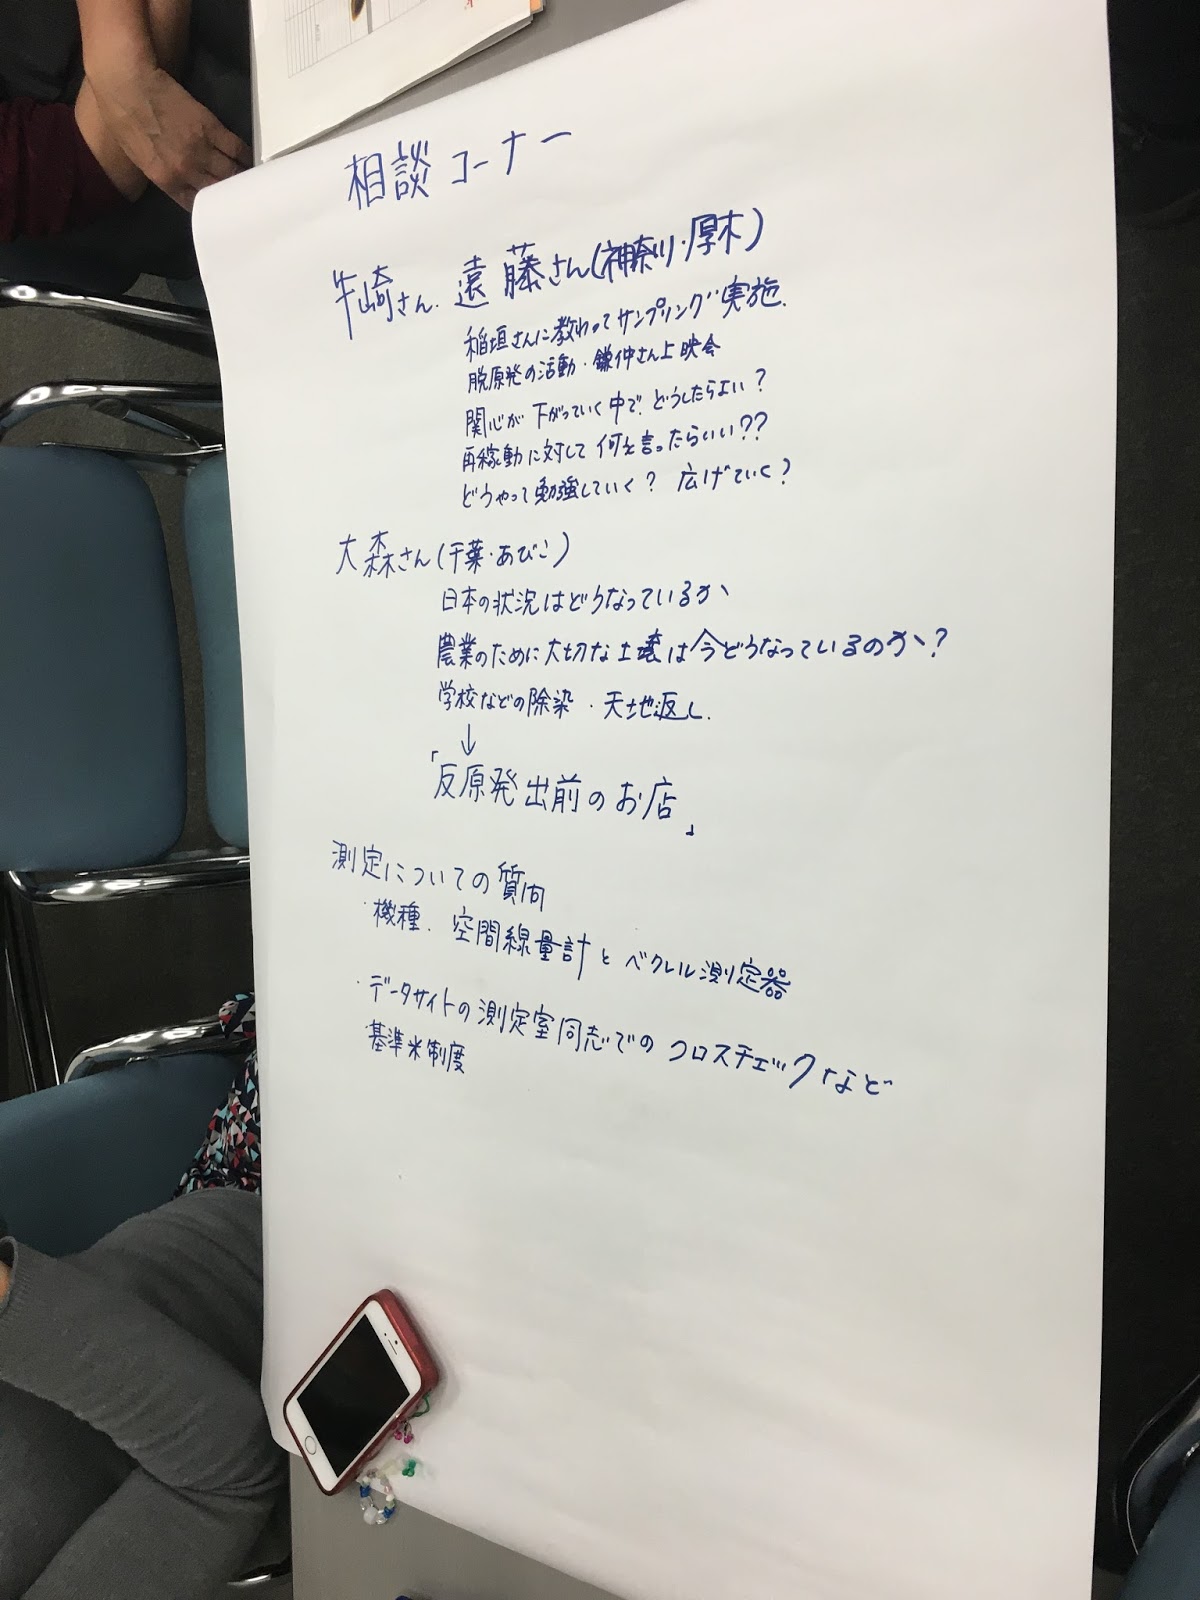 相談コーナー
牛崎さん. 遠藤さん(神奈川・厚木)
稲垣さんに教わってサンプリング実施.
脱原発の活動・鎌仲さん上映会
関心が下がっていく中で、どうしたらよい?
再稼動に対して何を言ったらいい??
どうやって勉強していく? 広げていく?
大森さん(千葉・あびこ)
日本の状況はどうなっているか
農業のために大切な土壌は今どうなっているのか?
学校などの除染・天地返し.
↓
「反原発出前のお店」
測定についての質問
・機種. 空間線量計とベクレル測定器
・データサイトの測定室同志でのクロスチェックなど
基準米制度